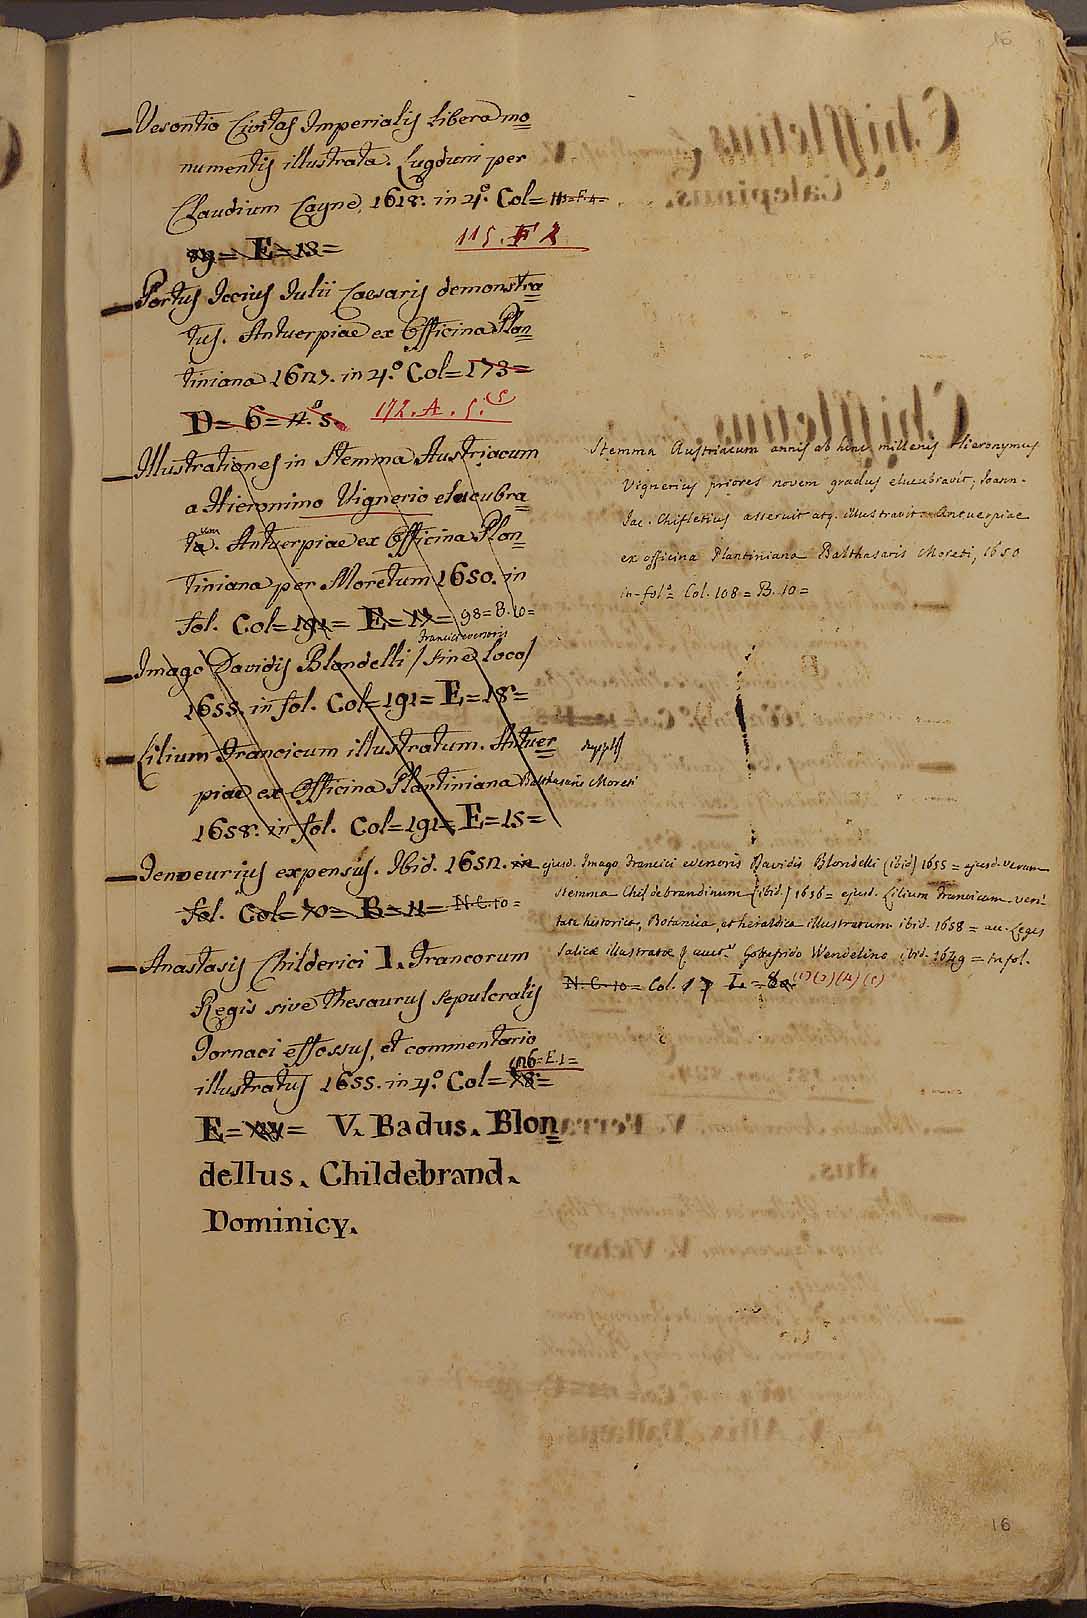 16
Vesontio Civitas Imperialis Libera mo
numentis illustrata. Lugduni per
Claudium Cayne, 1618. in 4.º Col=
89= E=18=
115. F 2
Portus Iccius Iulii Caesaris demonstra
tus. Antuerpiae ex Officina Plan
tiniana 1627. in 4.º Col= 173=
D= 6= n.º 5.
172. A. 5.
Illustrationes in Stemma Austriacum
a Hieronimo Vignerio elucubra
ta. Antuerpiae ex Officina Plan
tiniana per Moretum 1650. in
fol. Col= 191= E= 98= B. 10=
Imago Davidis Blondelli / sine loco /
Francici evenoris
1655. in fol. Col= 191= E= 18=
Lilium Francicum illustratum. Antuer
piae ex Officina Plantiniana Balthasaris Moreti
1658. in fol. Col= 191= E= 15=
expensus. Ibid. 1652. in
fol. Col= 70= B= 11= N. C. 10=
Anastasis Childerici I. Francorum
Regis sive thesaurus sepulcralis
Tornaci effossus, et commentario
illustratus 1655. in 4.º Col= 78=
126= E. 1=
E= V. Badus. Blon
dellus. Childebrand.
Dominicy.
Stemma Austriacum annis ab hinc millenis Hieronymus
Vignerius priores novem gradus elucubravit; Ioann.
Iac. Chifletius asseruit atq. illustravit. Antuerpiae
ex officina Plantiniana Balthasaris Moreti, 1650
in-fol.º Col. 108= B. 10=
ejusd. Imago Francici evenoris Davidis Blondelli (ibid) 1655= ejusd. verum
stemma Childebrandinum (ibid.) 1656= ejusd. Lilium Francicum veri
tate historica, Botanica, et heraldica illustratum ibid. 1658= Leges
Salicae illustratae Gotefrido Wendelino ibid. 1649= in fol.
N. C. 10= Col. 17 L= 8 (1) (2) (4) (5)
16